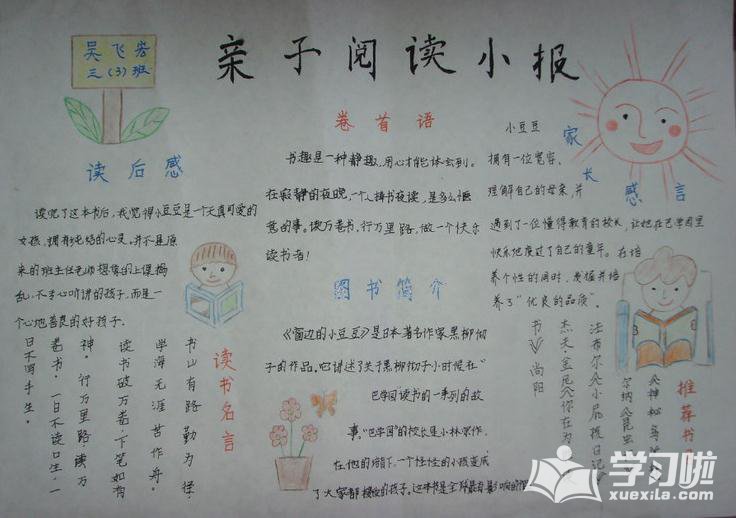 吴飞宏
三（3）班
亲子阅读小报
读后感
读完了这本书后，我觉得小豆豆是一个天真可爱的
女孩，拥有纯洁的心灵。并不是原
来的班主任老师想象的上课捣
乱，不专心听讲的孩子，而是一
个心地善良的好孩子。
卷首语
书趣是一种静趣，用心才能体会到。
在寂静的夜晚，一个人捧书夜读，是多么惬
意的事。读万卷书，行万里路，做一个快乐
读书者！
家长感言
小豆豆
拥有一位宽容、
理解自己的母亲，并
遇到了一位懂得教育的校长，让她在巴学园里
快乐地度过了自己的童年。在培
养个性的同时，发掘并培
养了“优良的品质”。
图书简介
《窗边的小豆豆》是日本著名作家黑柳彻
子的作品。它讲述了关于黑柳彻子小时候在“
巴学园”读书的一系列的故
事。“巴学园”的校长是小林宗作，
在他的培下，一个怪怪的小孩变成
了大家都接受的孩子。这本书是全球最有影响的
读书名言
书山有路勤为径，
学海无涯苦作舟。
读书破万卷，下笔如有
神。行万里路，读万
卷书。一日不读口生，一
日不写手生。
推荐书
法布尔《小屁孩日记》
杰夫·金尼《你在为
书》尚阳
学习啦
xuexila.com